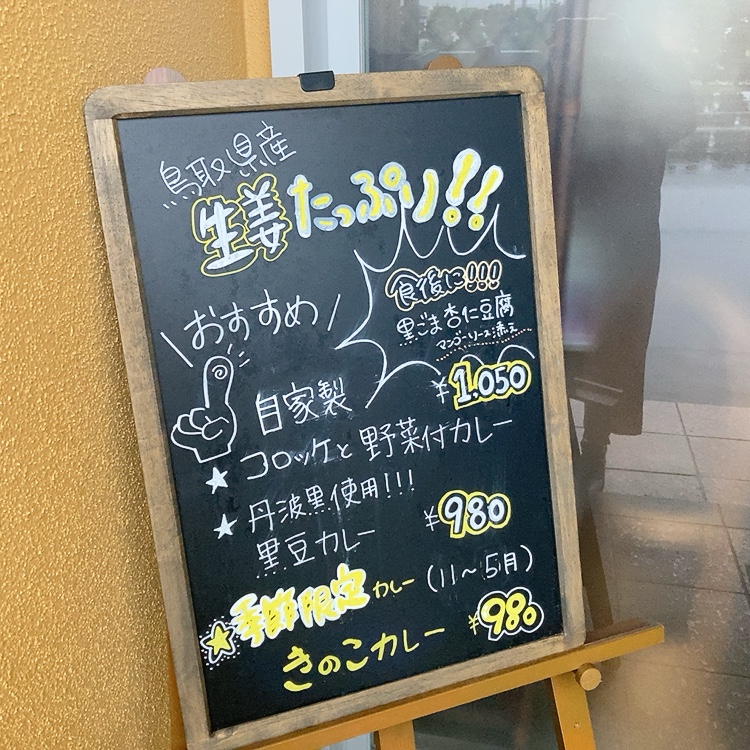 鳥取県産
生姜たっぷり!!
食後に!!!
黒ごま杏仁豆腐
マンゴーソース添え
\おすすめ/
自家製
¥1.050
★コロッケと野菜付カレー
★丹波黒使用!!!
黒豆カレー ¥980
★季節限定カレー(11〜5月)
きのこカレー ¥980